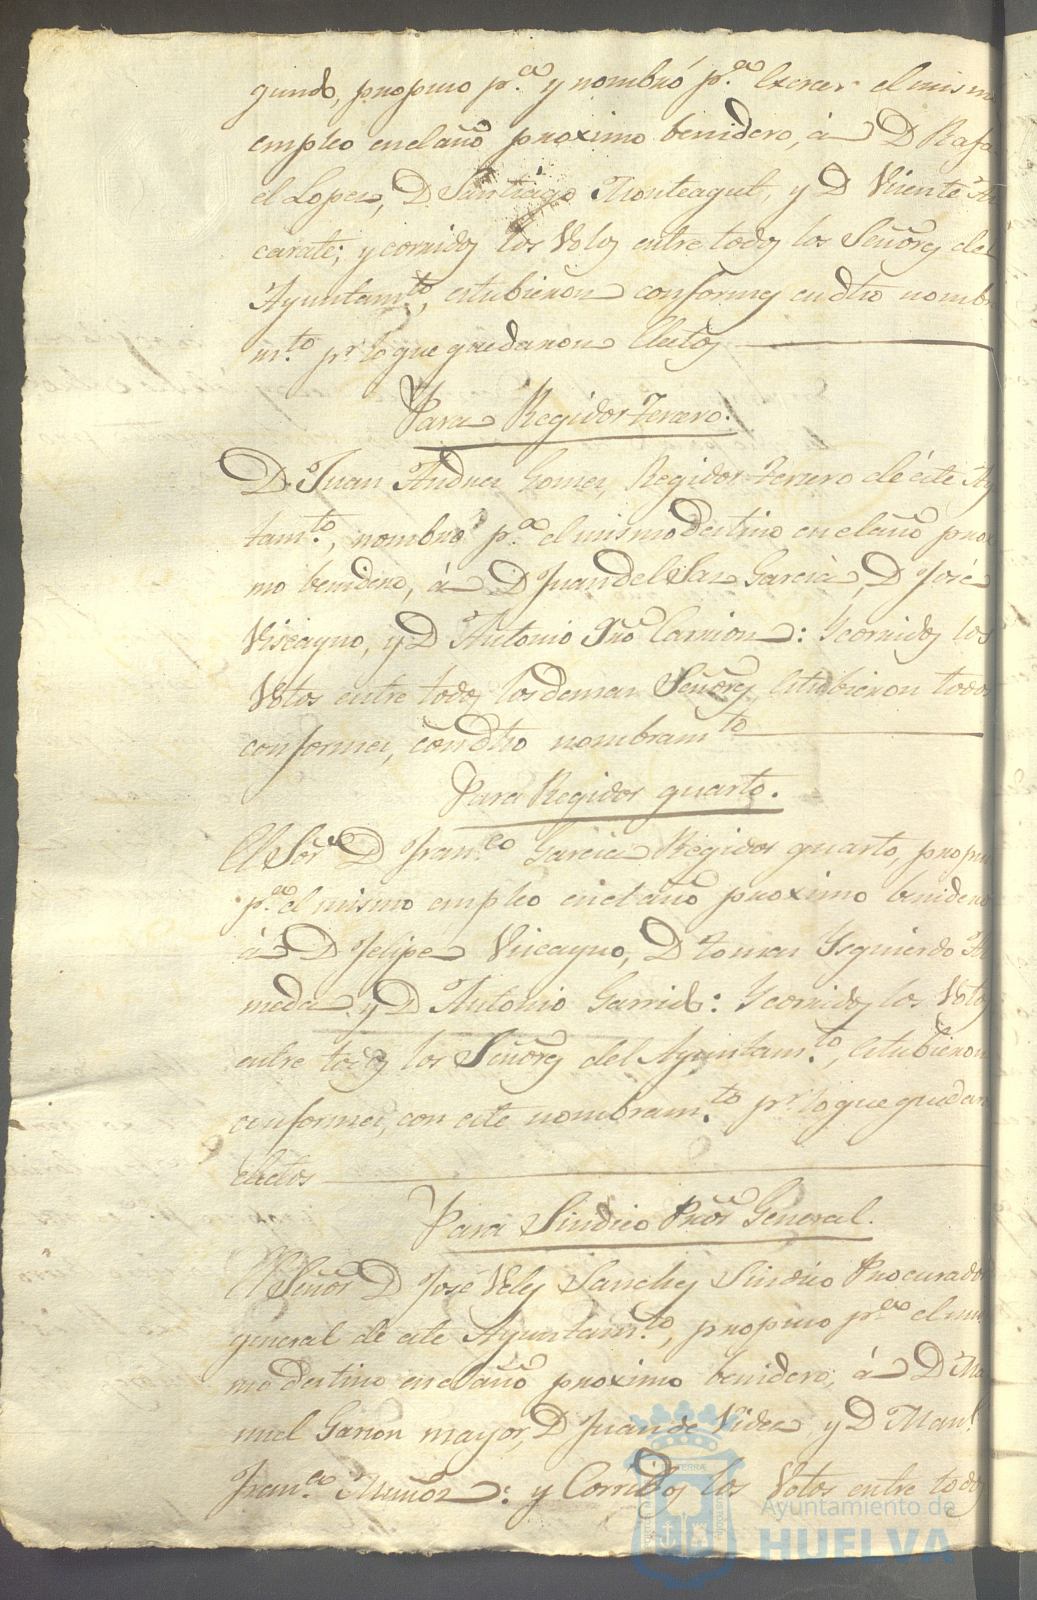 gundo, propuso p.ra y nombró p.ra Exercer el mismo
empleo en el año proximo benidero, á D Rafa
el Lopez, D Santiago Monteagud, y D Vicente
carate; y corridos los Votos entre todos los Señores de
Ayuntam.to, estubieron conformes en dho nombra
m.to p.r lo que quedaron Electos
Para Regidor Tercero.
D. Juan Andres Gomez, Regidor Tercero de este Ay
tam.to, nombró p.a el mismo destino en el año proxi
mo benidero, á D Juan del Garcia, D José
Viscayno, y D Antonio Carrion: Y corridos los
Votos entre todos los demas Señores, Estubieron todos
conformes, con dho nombram.to
Para Regidor quarto.
El Sor D Fran.co Garcia Regidor quarto, propuso
p.a el mismo empleo en el año proximo benidero
á D Felipe Viscayno, D Tomas Ysquierdo
meda y D Antonio Garrido: Y corridos los Votos
entre todos los Señores del Ayuntam.to, Estubieron
conformes, con este nombram.to p.r lo que quedaron
electos
Para Sindico Pror General.
El Señor D José Velez Sanchez Sindico Procurador
general de este Ayuntam.to, propuso p.ra el mis
mo destino en el año proximo benidero, á D Ma
nuel Garzon mayor, D Juan de Vides y D Man.l
Fran.co Muñoz: y Corridos los Votos entre todos
Ayuntamiento de
HUELVA